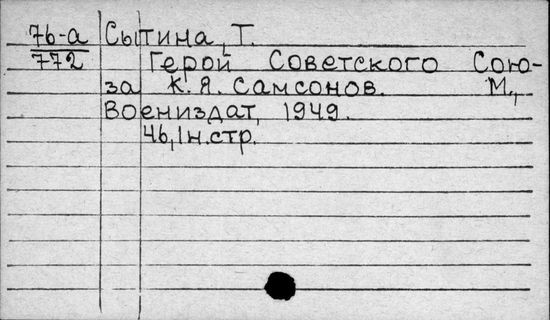 76-а Сытина, Т.
772 Герой Советского Сою-
за К. Я. Самсонов. М.,
Воениздат, 1949.
46, 1 н. стр.